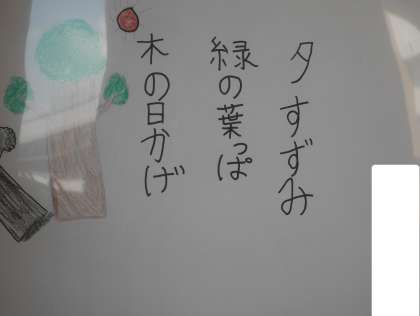 夕すずみ
緑の葉っぱ
木の日かげ